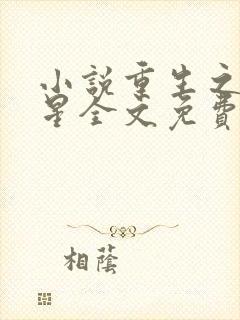 小說重生之
星全文免費
相蔭